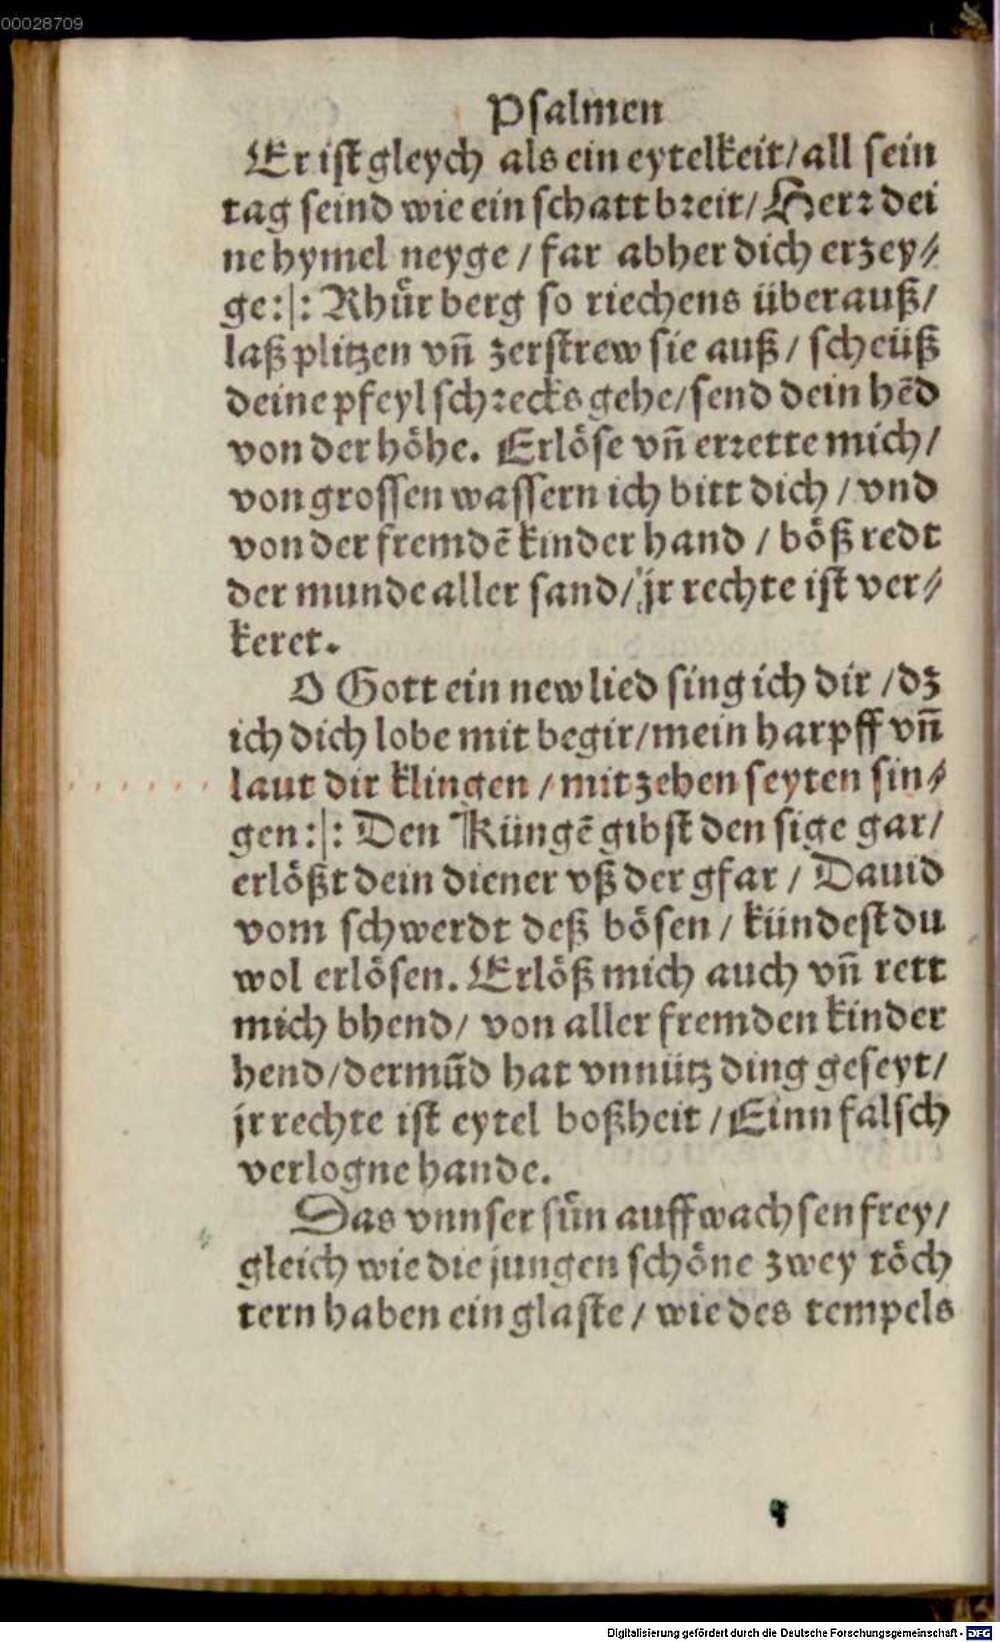 00028709
Psalmen
Er ist gleych als ein eytelkeit/all sein
tag seind wie ein schatt breit/Herr dei
ne hymel neyge / far abher dich erzey⸗
ge:|: Rhuͤr berg so riechens überauß/
laß plitzen vñ zerstrew sie auß / scheüß
deine pfeyl schrecks gehe/send dein hẽd
von der hoͤhe. Erloͤse vñ errette mich/
von grossen wassern ich bitt dich / vnd
von der fremdẽ kinder hand / boͤß redt
der munde aller sand/ jr rechte ist ver⸗
keret.
O Gott ein new lied sing ich dir /dz
ich dich lobe mit begir/mein harpff vñ
laut dir klingen / mit zehen seyten sin⸗
gen:|: Den Küngẽ gibst den sige gar/
erloͤßt dein diener vß der gfar / Dauid
vom schwerdt deß boͤsen / kündest du
wol erloͤsen. Erloͤß mich auch vñ rett
mich bhend/ von aller fremden kinder
hend/der mũd hat vnnütz ding geseyt/
jr rechte ist eytel boßheit / Einn falsch
verlogne hande.
Das vnnser suͤn auffwachsen frey/
gleich wie die jungen schoͤne zwey toͤch
tern haben ein glaste / wie des tempels
Digitalisierung gefördert durch die Deutsche Forschungsgemeinschaft - DFG